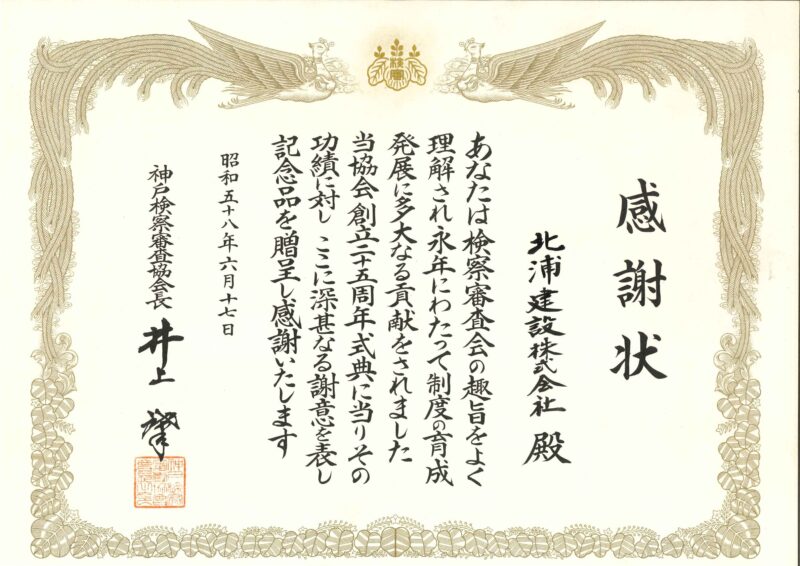 検審
感謝状
北浦建設株式会社 殿
あなたは検察審査会の趣旨をよく
理解され永年にわたって制度の育成
発展に多大なる貢献をされました
当協会創立二十五周年式典に当りその
功績に対し ここに深甚なる謝意を表し
記念品を贈呈し感謝いたします
昭和五十八年六月十七日
神戸検察審査協会長
井上